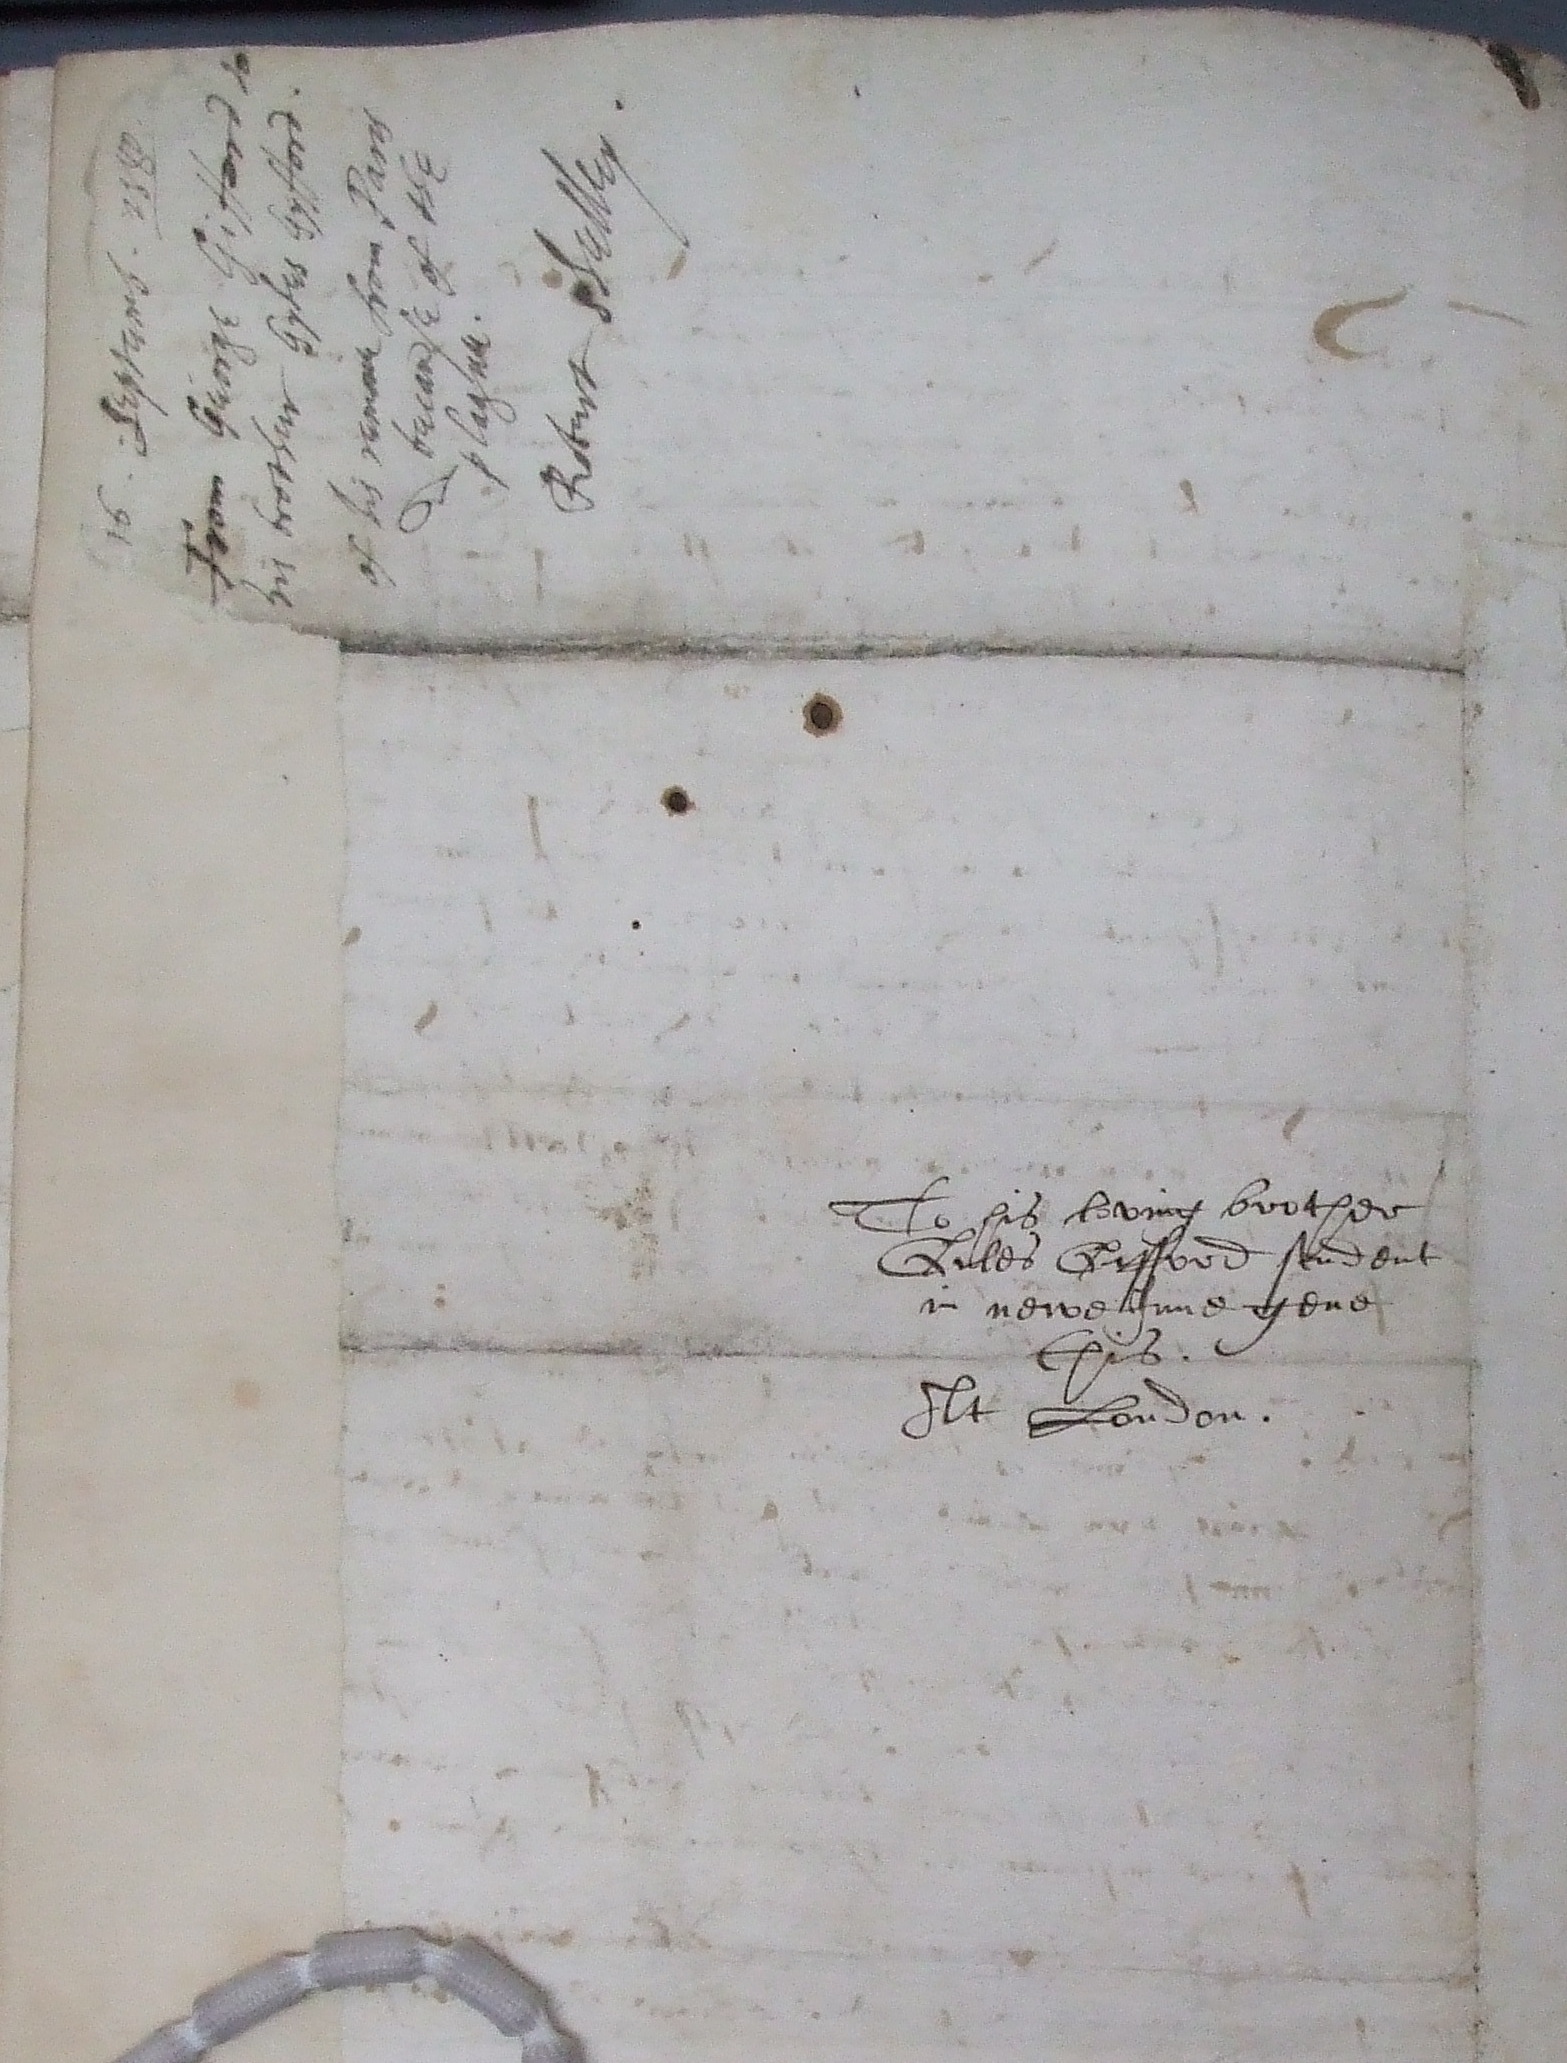 16 . Septemb . 1582.
From George Giffard to
his brother Gyles Gyffard.
of his remove from Paris
because of the
plague.
Robert Shelley.
To his loving brother
Gyles Gyfford student
in newe Inne geve
this.
At London.